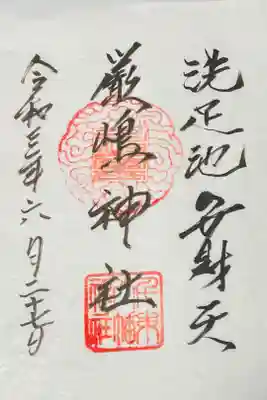 洗足池 弁財天
厳嶋神社
令和三年六月二十七日